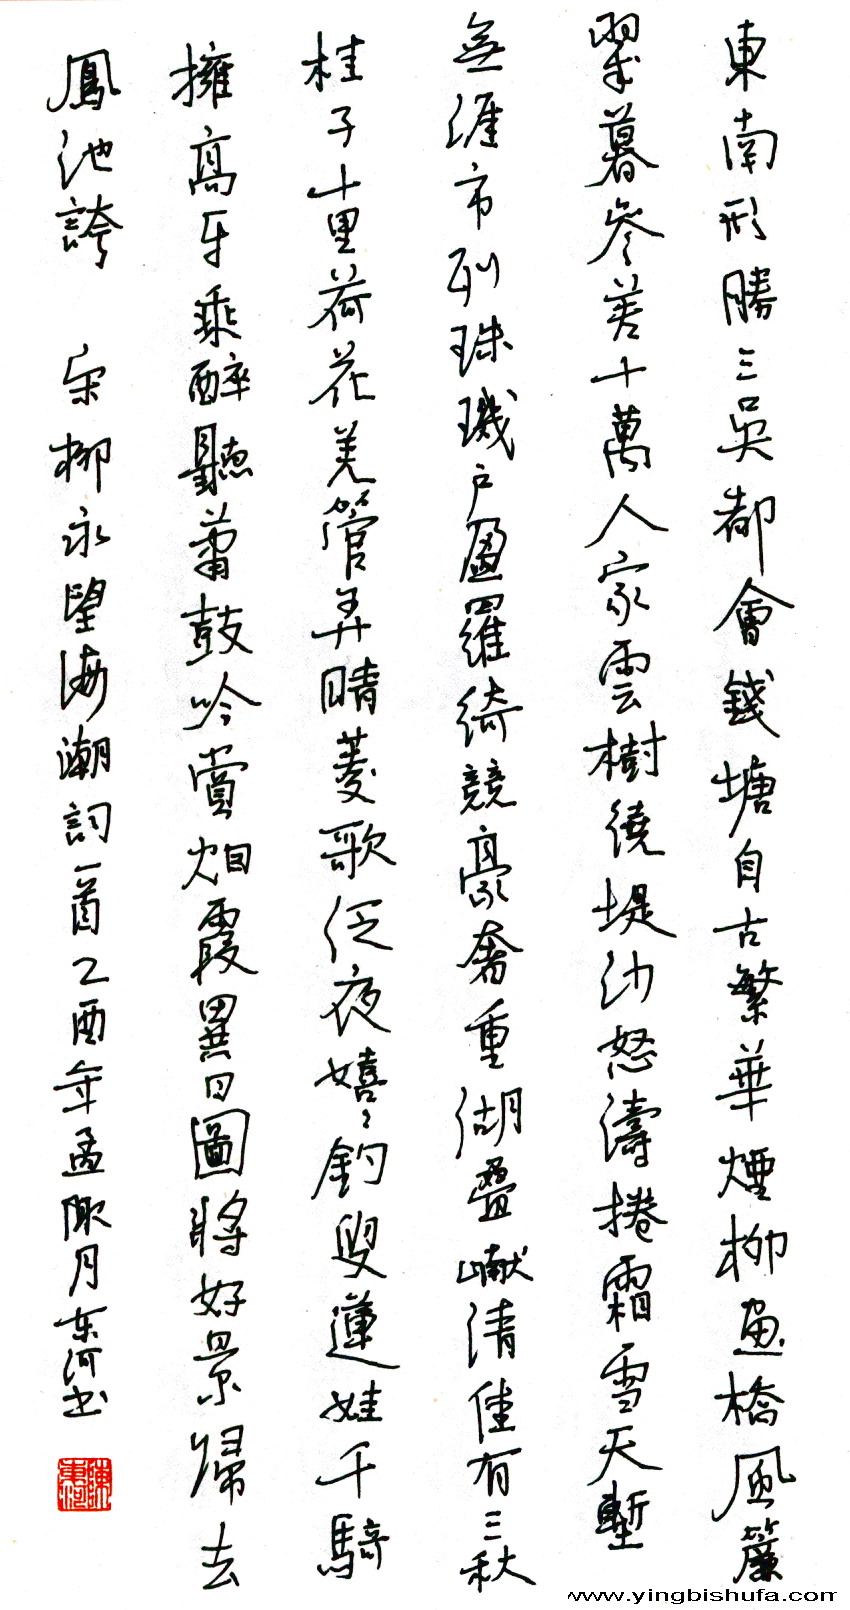 東南形勝三吳都會錢塘自古繁華煙柳畫橋風簾
翠暮參差十萬人家雲樹繞堤沙怒濤捲霜雪天塹
無涯市列珠璣戶盈羅綺競豪奢重湖疊巘清佳有三秋
桂子十里荷花羌管弄晴菱歌泛夜嬉嬉釣叟蓮娃千騎
擁高牙乘醉聽簫鼓吟賞烟霞異日圖將好景歸去
鳳池誇 宋柳永望海潮詞一首乙酉年孟陬月东河书
www.yingbishufa.com